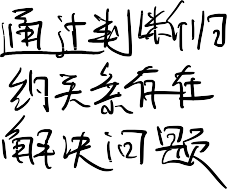 通过判断归
约关系存在
解决问题